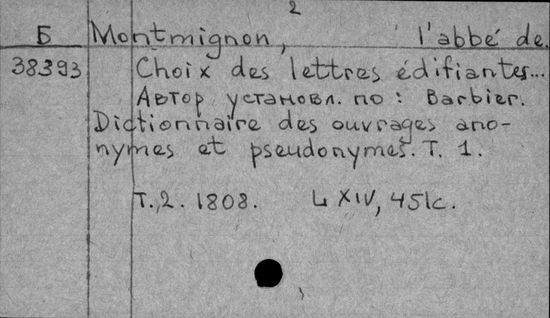 2
Б Montmignon, l'abbé de.
38393 Choix des lettres édifiantes...
Автор установл. по: Barbier.
Dictionnaire des ouvrages ano-
nymes et pseudonymes. T. 1.
T. 2. 1808. LXIV, 451c.